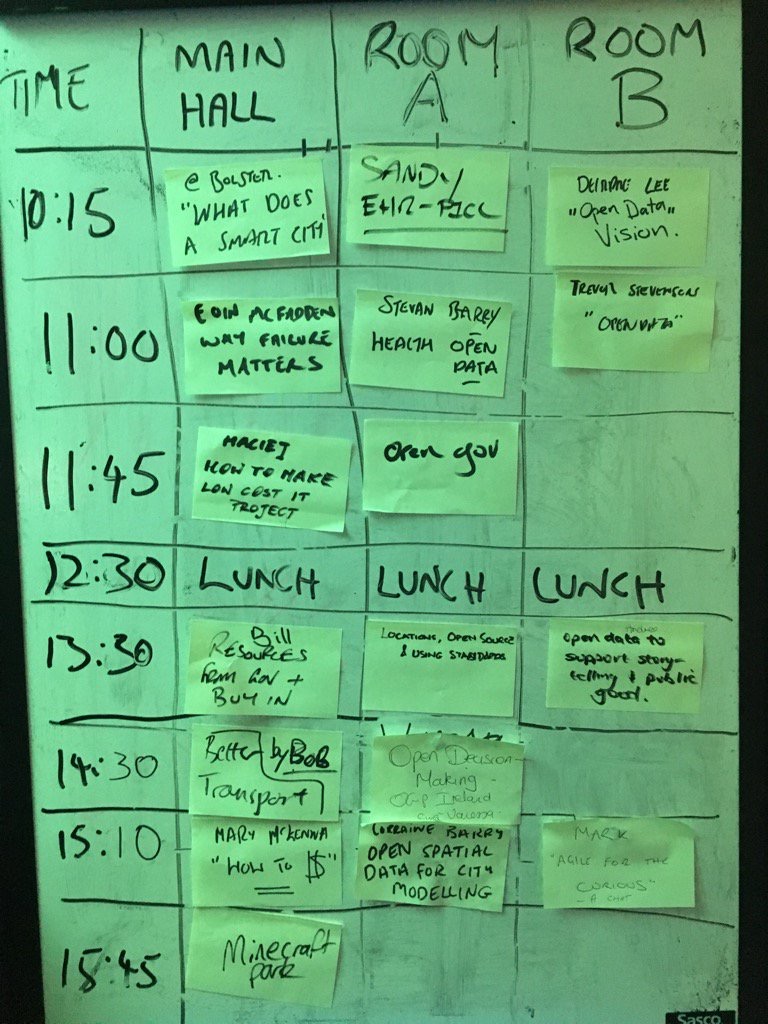 TIME
MAIN
HALL
ROOM
A
ROOM
B
10:15
@ BOLSTER.
"WHAT DOES
A SMART CITY
SANDY
LEE
"Open Data"
Vision.
11:00
EOIN MCFADDEN
WHY FAILURE
MATTERS
STEVAN BARRY
HEALTH OPEN
DATA
TREVOR STEVENSON
"OPENDATA"
11:45
MACIEJ
HOW TO MAKE
LOW COST IT
PROJECT
Open gov
12:30
LUNCH
LUNCH
LUNCH
13:30
Bill
RESOURCES
from Gov +
BUY IN
LOCATIONS, OPEN SOURCE
& USING STANDARDS
open data to
support story-
telling & public
good.
14:30
Better by BOB
Transport
Open Decision-
Making -
OGP Ireland
15:10
MARY MCKENNA
"HOW TO
LORRAINE BARRY
OPEN SPATIAL
DATA FOR CITY
MODELLING
MARK
"AGILE FOR THE
CURIOUS"
- A CHAT
15:45
Minecraft
park
Sasco